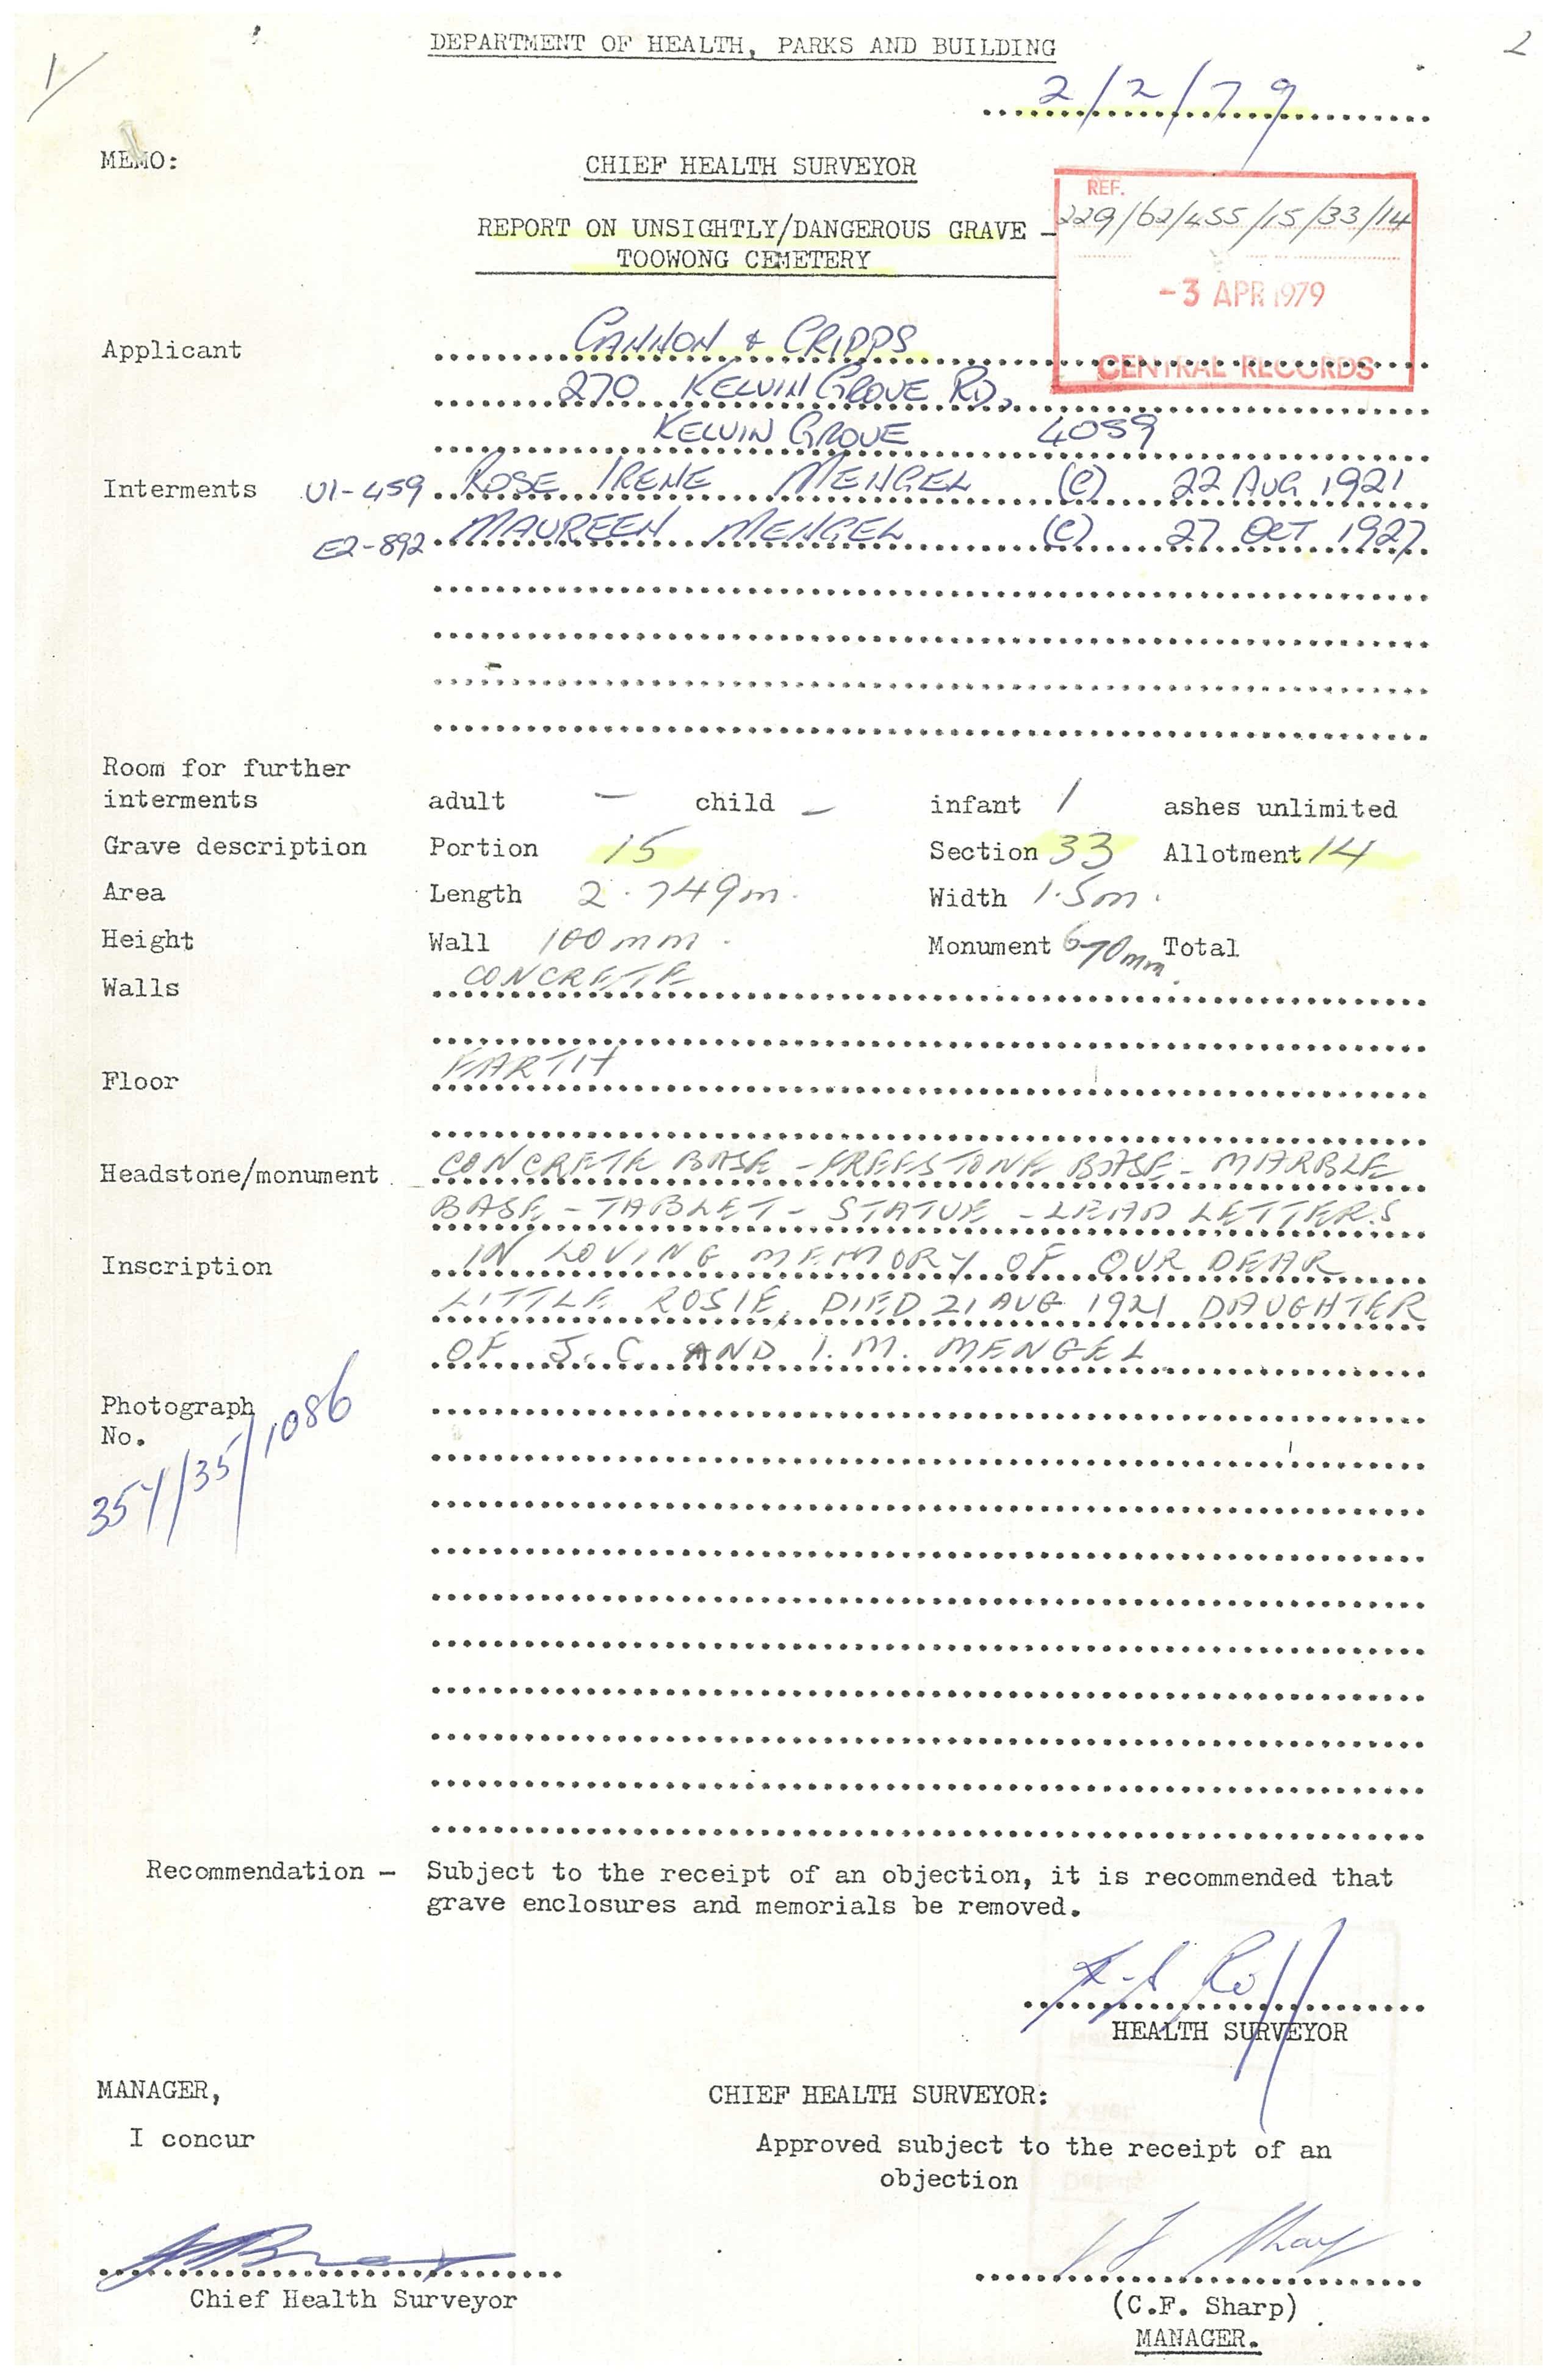 DEPARTMENT OF HEALTH, PARKS AND BUILDING
1/
2
2/2/79
MEMO:
CHIEF HEALTH SURVEYOR
REPORT ON UNSIGHTLY/DANGEROUS GRAVE -
TOOWONG CEMETERY
REF.
229/62/455/15/33/14
-3 APR 1979
CENTRAL RECORDS
Applicant CANNON & CRIPPS
270 KELVIN GROVE RD,
KELVIN GROVE 4059
Interments U1-459 ROSE IRENE MENGEL (C) 22 AUG 1921
E2-892 MAUREEN MENGEL (C) 27 OCT 1927
Room for further
interments adult - child - infant 1 ashes unlimited
Grave description Portion 15 Section 33 Allotment 14
Area Length 2.749m. Width 1.5m.
Height Wall 100mm. Monument 670mm. Total
Walls CONCRETE
Floor EARTH
Headstone/monument CONCRETE BASE - FREESTONE BASE - MARBLE
BASE - TABLET - STATUE - LEAD LETTERS
Inscription IN LOVING MEMORY OF OUR DEAR
LITTLE ROSIE, DIED 21 AUG 1921 DAUGHTER
OF J.C. AND I.M. MENGEL
Photograph
No.
/35/1086
Recommendation - Subject to the receipt of an objection, it is recommended that
grave enclosures and memorials be removed.
HEALTH SURVEYOR
MANAGER,
CHIEF HEALTH SURVEYOR:
I concur
Approved subject to the receipt of an
objection
Chief Health Surveyor
(C.F. Sharp)
MANAGER.